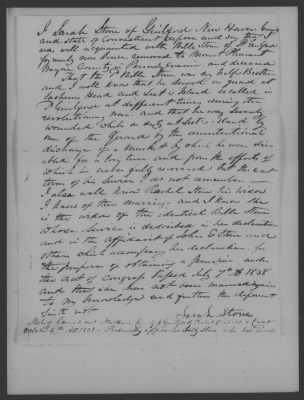 I Sarah Stone of Guilford New Haven County
and State of Connecticut depose and say that I
was well acquainted with Bille Stone of Guilford
formerly now since removed to Mount Pleasant
Wayne County in Pennsylvania and deceased
That the sd Bille Stone was my half Brother
and I well know that he served on guard at
Sachems Head and Sut's Island so called in
sd Guilford at different times during the
revolutionary war and that he was severely
wounded while on duty at Sut's Island by
one of the Guards by the unintentional
discharge of a Musket by which he was dis
abled for a long time and from the effects of
which he never fully recovered but the exact
term of his service I do not remember
I also well know Rachel Stone his widow
I knew of their marriage and I know she
is the widow of the identical Bille Stone
whose service is described in her declaration
and in the affidavit of John Elton and
others which accompany her declaration for
the purpose of obtaining a pension under
the act of Congress passed July 7th 1838
and that she has not been married again
to my knowledge and further the deponent
saith not
Sarah Stone
State of Connecticut
October 6th AD 1838 Personally appeared Sally Stone who has